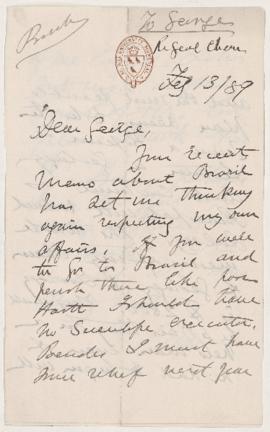 To George
Brazil
Feb 13/89
Dear George,
Your recent
memo about Brazil
has set me thinking
again respecting my own
affairs. If you were
to go to Brazil and
perish there like poor
Hartt I should have
no executor.
Besides I must have
some relief next year